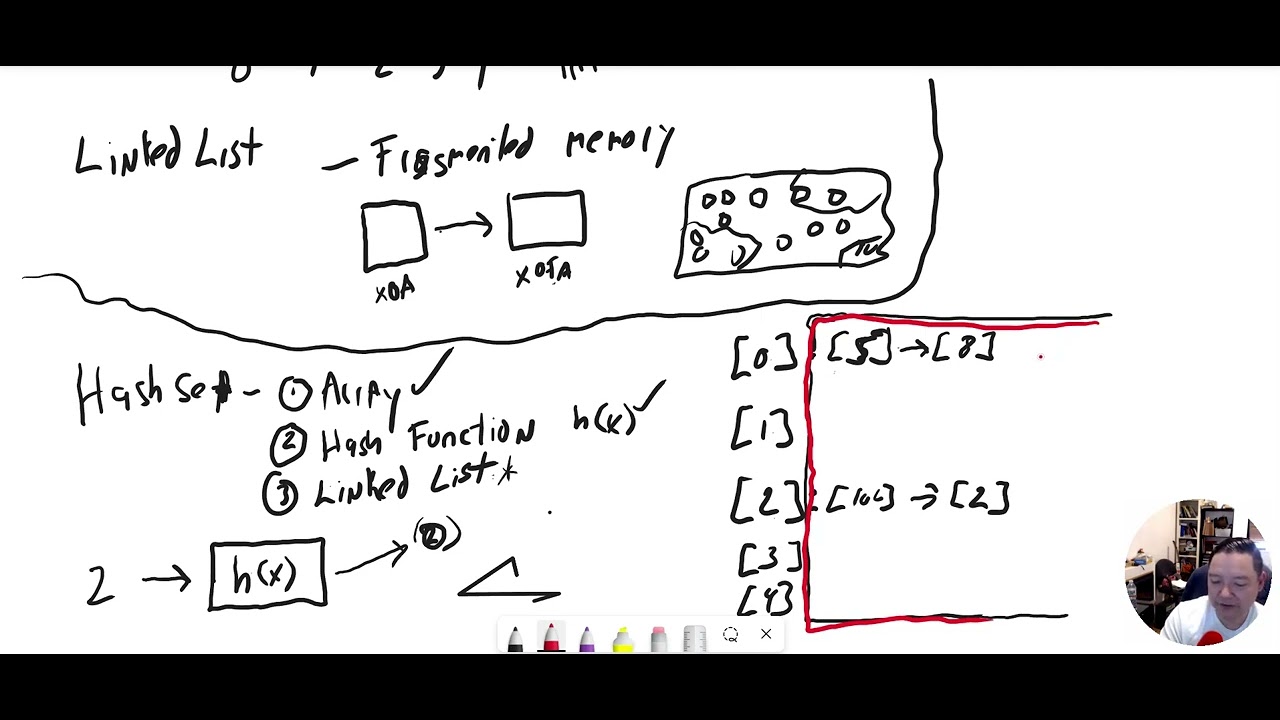 Linked List – Fragmented memory
x0A
x0FA
HashSet - ① Array ✓
② Hash Function h(x) ✓
③ Linked List *
2 → h(x) → (2)
[0] : [5] → [8]
[1]
[2] : [100] → [2]
[3]
[4]